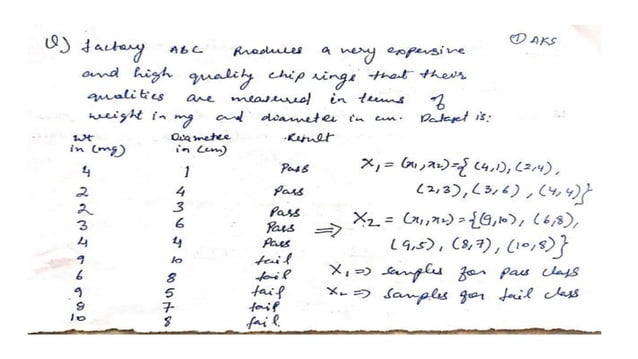 Q) Factory ABC Produces a very expensive
and high quality chip rings that their
qualities are measured in terms of
weight in mg and diameter in cm. Dataset is:
① AKS
Wt in (mg) Diameter in (cm) Result
4 1 Pass
2 4 Pass
2 3 Pass
3 6 Pass
4 4 Pass
9 10 fail
6 8 fail
9 5 fail
8 7 fail
10 8 fail.
X₁ = (x₁,x₂) = { (4,1), (2,4),
(2,3), (3,6), (4,4)}
⇒ X₂ = (x₁,x₂) = {(9,10), (6,8),
(9,5), (8,7), (10,8)}
X₁ ⇒ samples for pass class
X₂ ⇒ samples for fail class